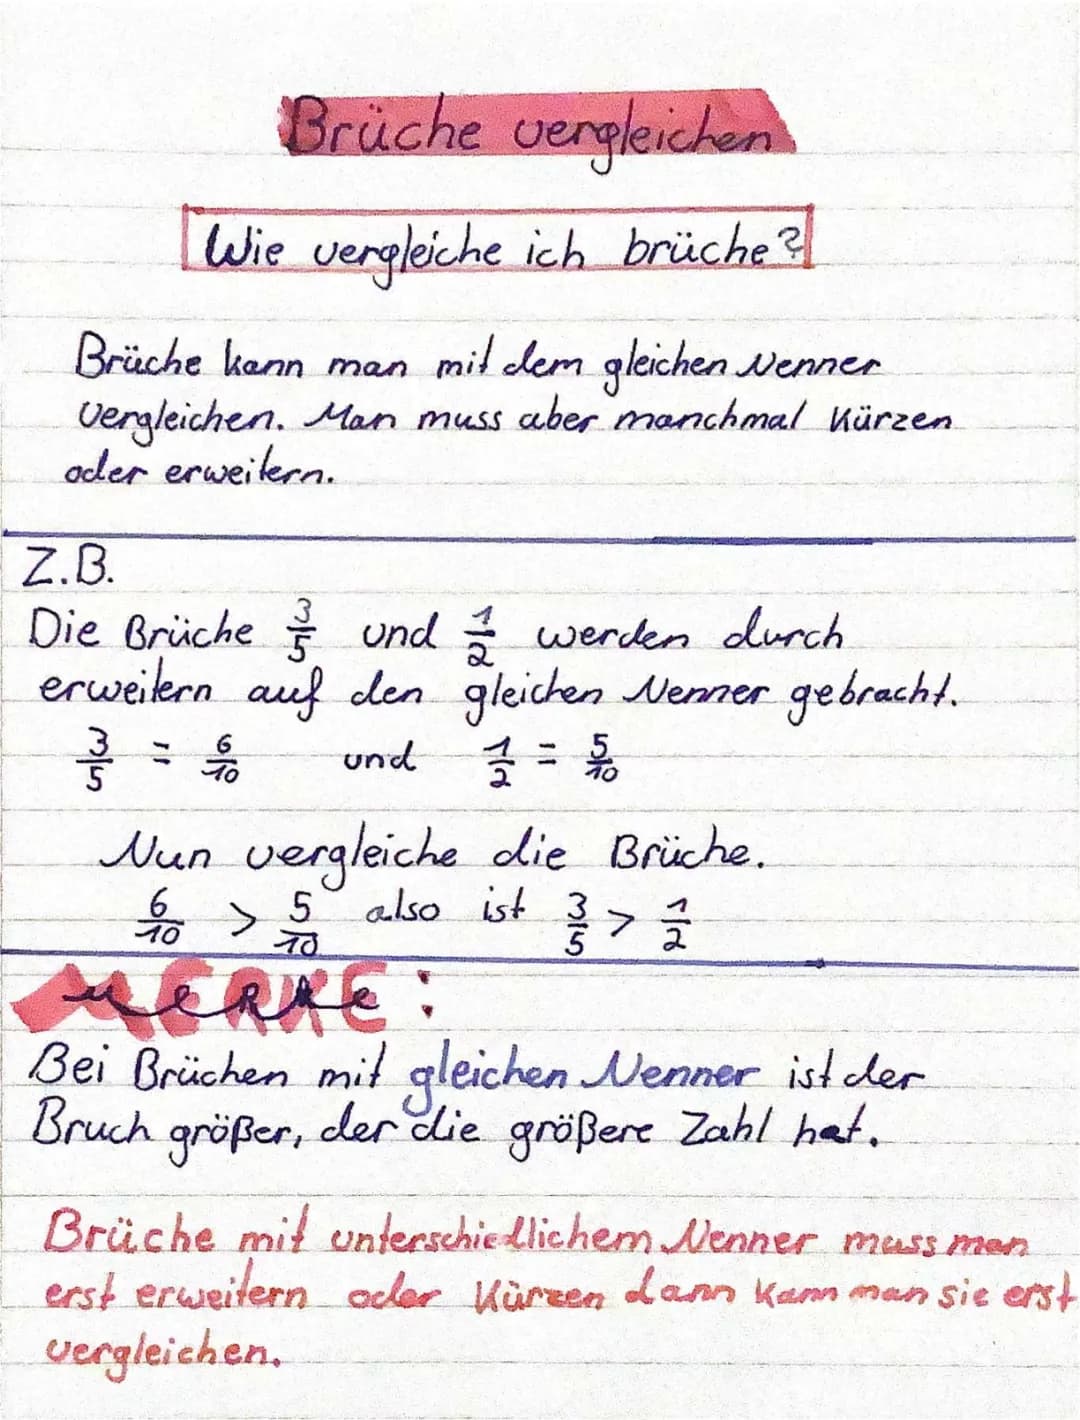 Brüche vergleichen
Wie vergleiche ich brüche?
Brüche kann man mit dem gleichen Nenner
vergleichen. Man muss aber manchmal kürzen
oder erweitern.
Z.B.
Die Brüche 3/5 und 1/2 werden durch
erweitern auf den gleichen Nenner gebracht.
3/5 = 6/10 und 1/2 = 5/10
Nun vergleiche die Brüche.
6/10 > 5/10 also ist 3/5 > 1/2
MERKE:
Bei Brüchen mit gleichen Nenner ist der
Bruch größer, der die größere Zahl hat.
Brüche mit unterschiedlichem Nenner muss man
erst erweitern oder kürzen dann kann man sie erst
vergleichen.